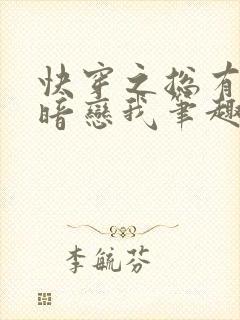 快穿之总有
暗戀我筆趣
李毓芬